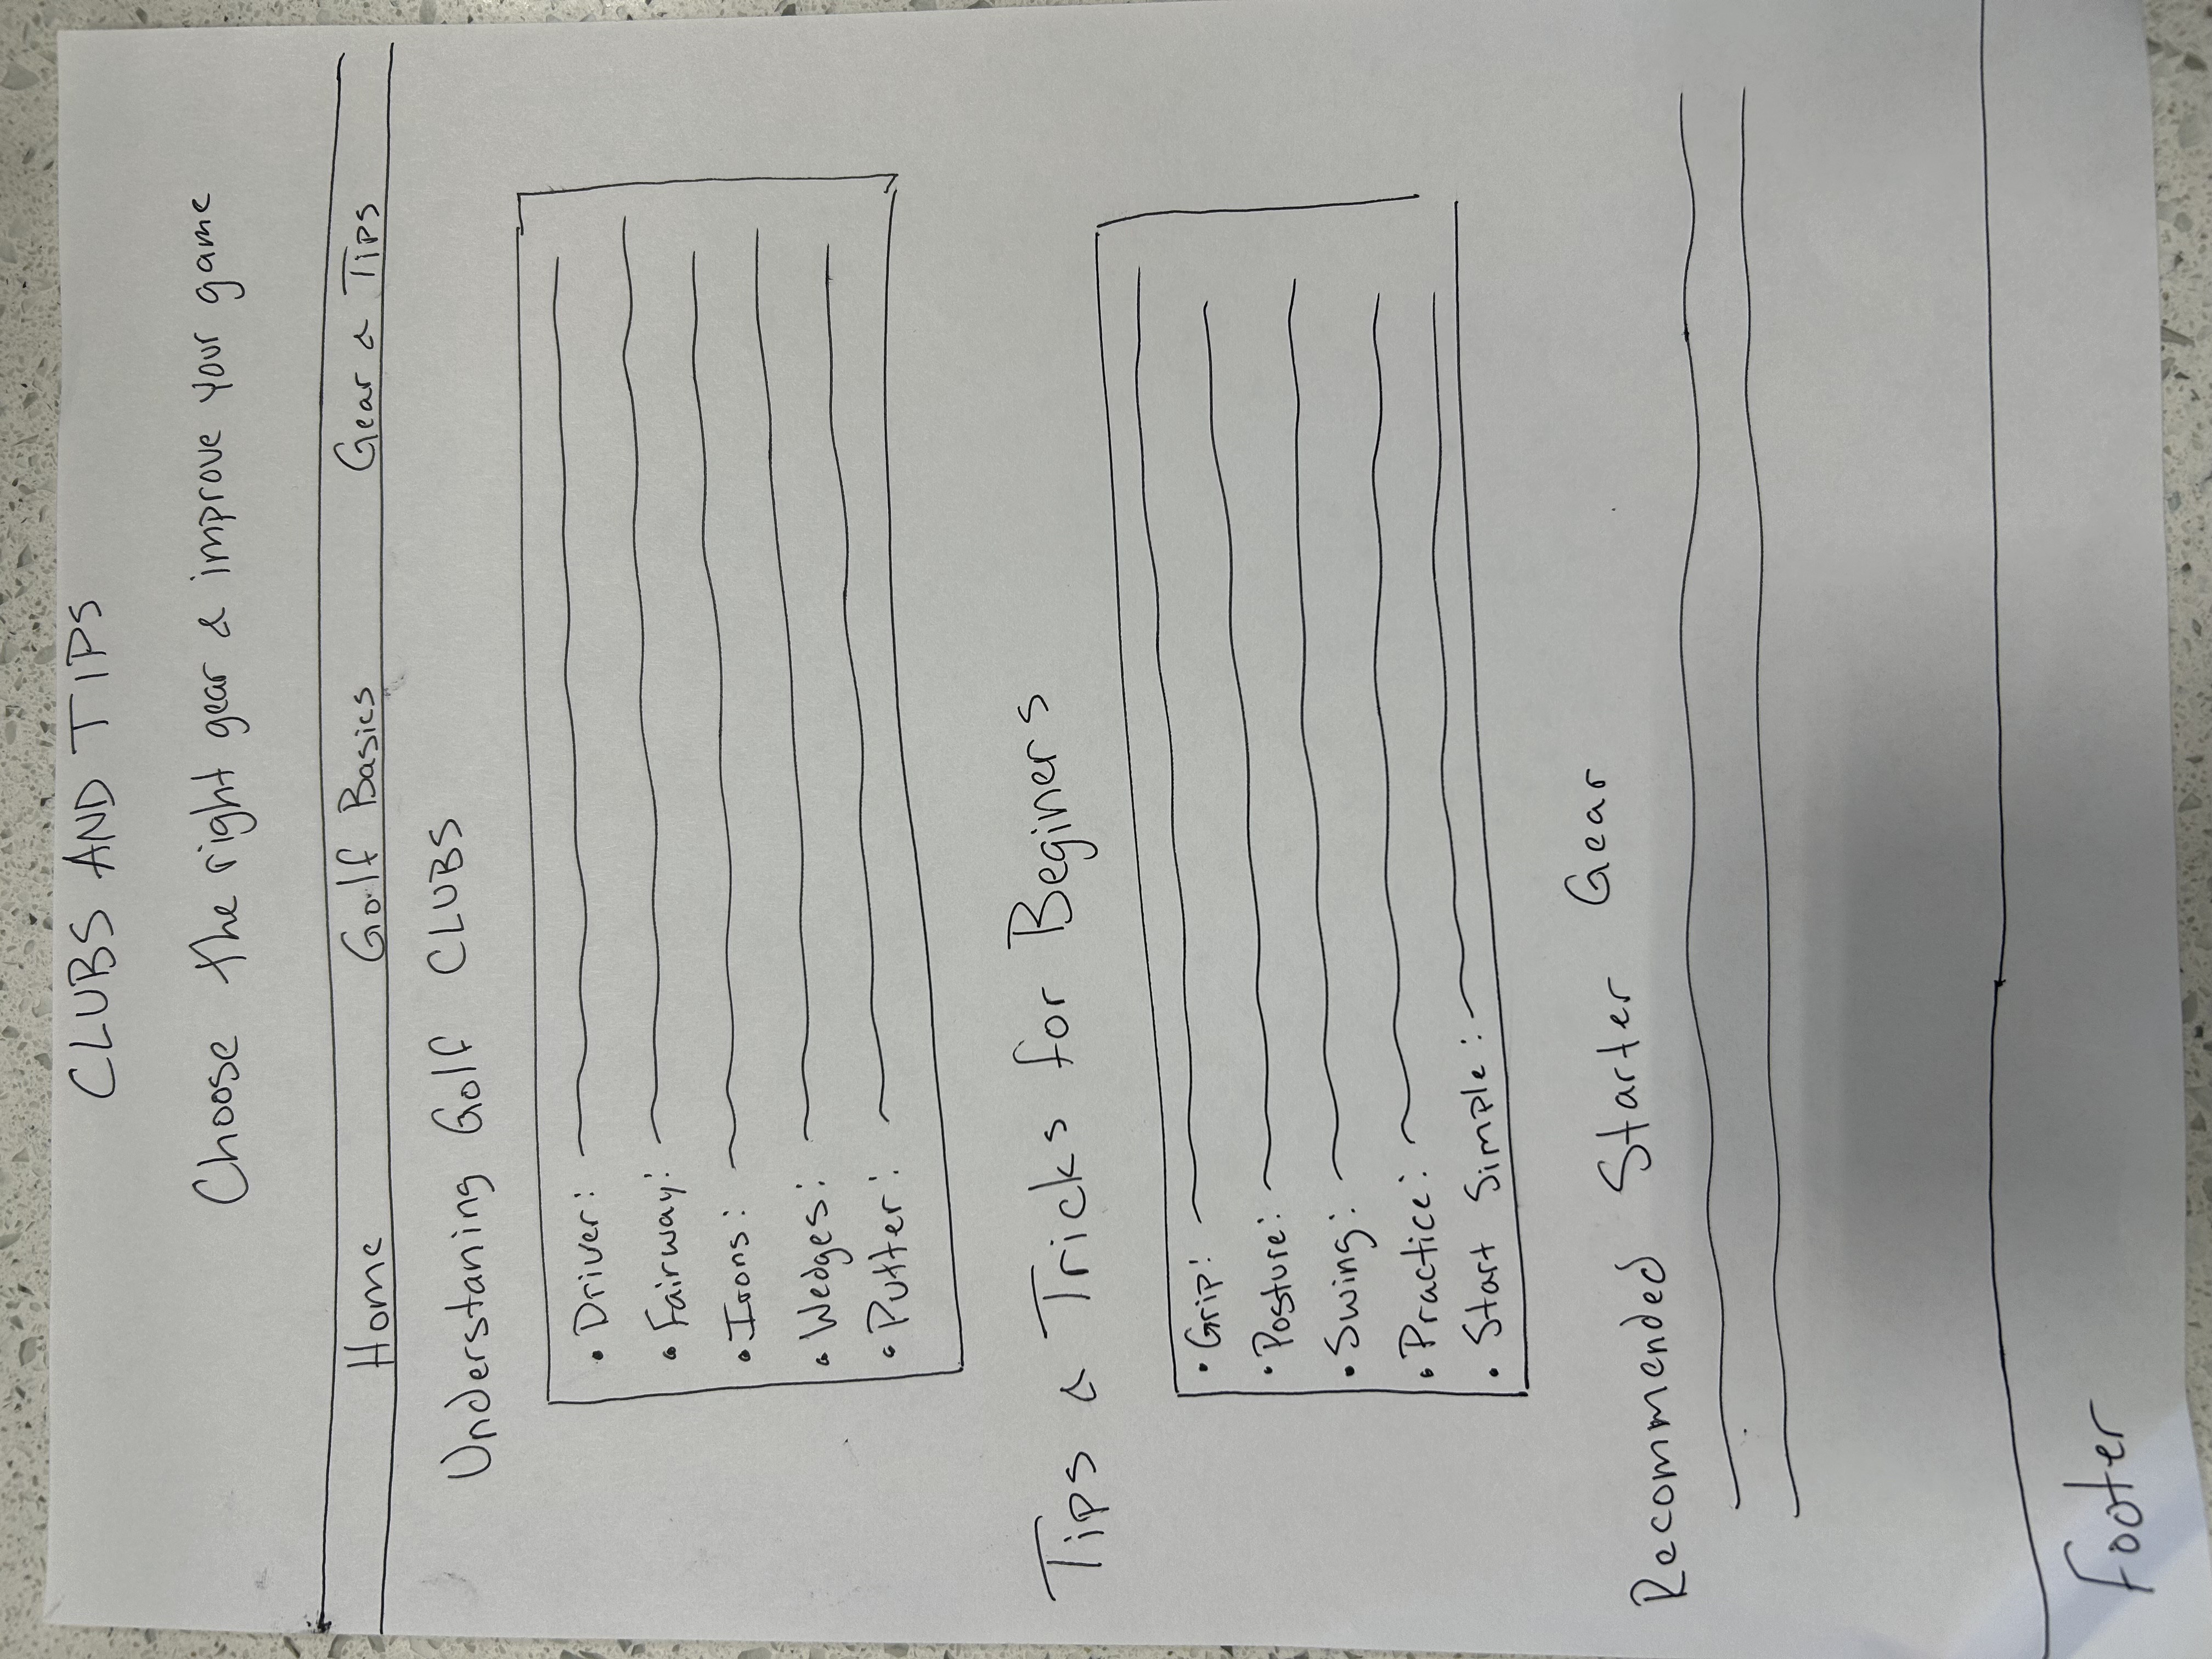 CLUBS AND TIPS
Choose the right gear & improve your game
Home Golf Basics Gear & Tips
Understaning Golf CLUBS
• Driver:
• Fairway:
• Irons:
• Wedges:
• Putter:
Tips & Tricks for Beginers
• Grip:
• Posture:
• Swing:
• Practice:
• Start Simple:
Recommended Starter Gear
Footer